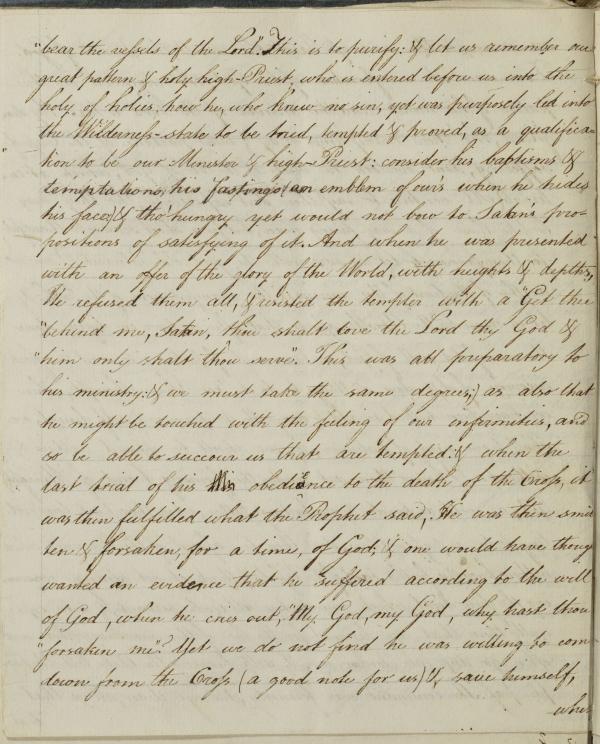 "bear the vessels of the Lord". This is to purify: & let us remember our
great pattern & holy high-Priest, who is entered before us into the
holy of holies, how he, who knew no sin, yet was purposely led into
the Wilderness-state to be tried, tempted & proved, as a qualifica-
tion to be our Minister & high-Priest: consider his baptisms &
temptations, his fastings (an emblem of ours when he hides
his face) & tho' hungry yet would not bow to Satan's pro-
positions of satisfying of it. And when he was presented
with an offer of the glory of the World, with heights & depths,
He refused them all, & resisted the tempter with a "Get thee
"behind me, Satan, thou shalt love the Lord thy God &
"him only shalt thou serve". This was all preparatory to
his ministry: (& we must take the same degrees;) as also that
he might be touched with the feeling of our infirmities, and
so be able to succour us that are tempted: & when the
last trial of his obedience to the death of the Cross, it
was then fulfilled what the Prophet said, He was then smit
ten & forsaken, for a time, of God; & one would have thoug
wanted an evidence that he suffered according to the will
of God, when he cries out, "My God, my God, why hast thou
"forsaken me"? Yet we do not find he was willing to com
down from the Cross (a good note for us) & save himself,
who